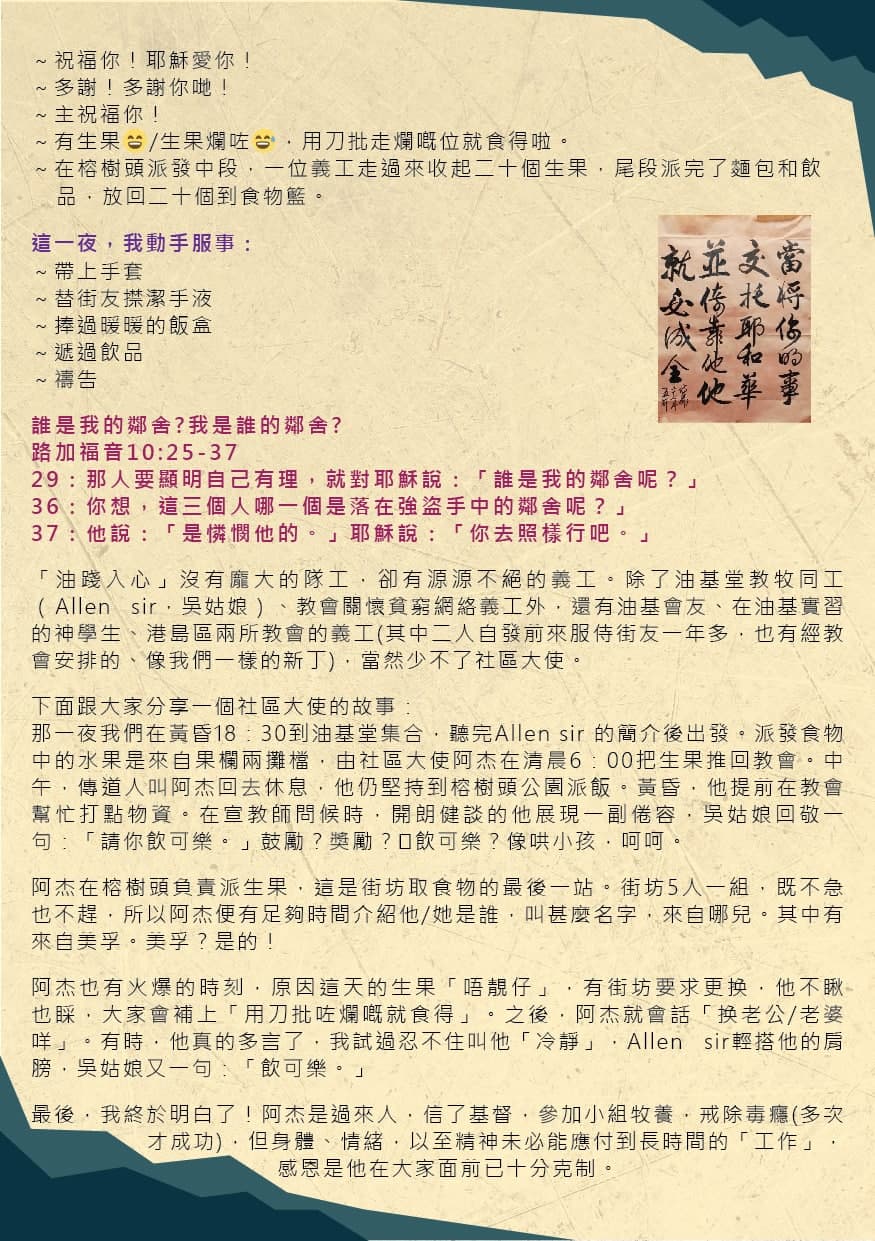 ~ 祝福你！耶穌愛你！
~ 多謝！多謝你哋！
~ 主祝福你！
~ 有生果😄/生果爛咗😅，用刀批走爛嘅位就食得啦。
~ 在榕樹頭派發中段，一位義工走過來收起二十個生果，尾段派完了麵包和飲
品，放回二十個到食物籃。
這一夜，我動手服事：
~ 帶上手套
~ 替街友㩒潔手液
~ 捧過暖暖的飯盒
~ 遞過飲品
~ 禱告
當將你的事
交托耶和華
並倚靠他他
就必成全
誰是我的鄰舍?我是誰的鄰舍?
路加福音10:25-37
29：那人要顯明自己有理，就對耶穌說：「誰是我的鄰舍呢？」
36：你想，這三個人哪一個是落在強盜手中的鄰舍呢？」
37：他說：「是憐憫他的。」耶穌說：「你去照樣行吧。」
「油踐入心」沒有龐大的隊工，卻有源源不絕的義工。除了油基堂教牧同工
（Allen sir，吳姑娘）、教會關懷貧窮網絡義工外，還有油基會友、在油基實習
的神學生、港島區兩所教會的義工(其中二人自發前來服侍街友一年多，也有經教
會安排的、像我們一樣的新丁)，當然少不了社區大使。
下面跟大家分享一個社區大使的故事：
那一夜我們在黃昏18：30到油基堂集合，聽完Allen sir 的簡介後出發。派發食物
中的水果是來自果欄兩攤檔，由社區大使阿杰在清晨6：00把生果推回教會。中
午，傳道人叫阿杰回去休息，他仍堅持到榕樹頭公園派飯。黃昏，他提前在教會
幫忙打點物資。在宣教師問候時，開朗健談的他展現一副倦容，吳姑娘回敬一
句：「請你飲可樂。」鼓勵？獎勵？飲可樂？像哄小孩，呵呵。
阿杰在榕樹頭負責派生果，這是街坊取食物的最後一站。街坊5人一組，既不急
也不趕，所以阿杰便有足夠時間介紹他/她是誰，叫甚麼名字，來自哪兒。其中有
來自美孚。美孚？是的！
阿杰也有火爆的時刻，原因這天的生果「唔靚仔」，有街坊要求更换，他不瞅
也睬，大家會補上「用刀批咗爛嘅就食得」。之後，阿杰就會話「換老公/老婆
咩」。有時，他真的多言了，我試過忍不住叫他「冷靜」，Allen sir輕搭他的肩
膀，吳姑娘又一句：「飲可樂。」
最後，我終於明白了！阿杰是過來人，信了基督，參加小組牧養，戒除毒癮(多次
才成功)，但身體、情緒，以至精神未必能應付到長時間的「工作」，
感恩是他在大家面前已十分克制。